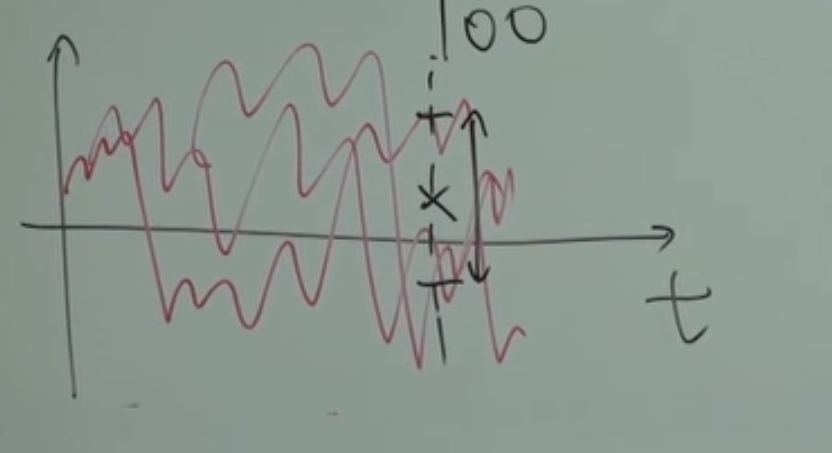 100
t